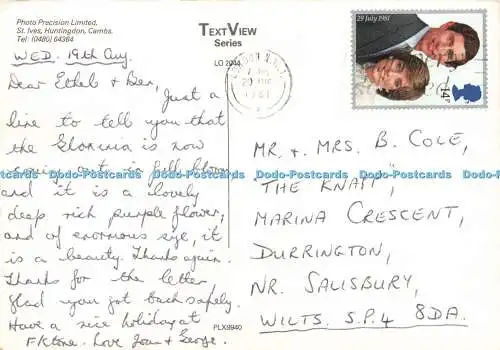 Photo Precision Limited,
St. Ives, Huntingdon, Cambs.
Tel: (0480) 64364
TEXTVIEW
Series
LO 2044
29 July 1981
14P
WED. 19th Aug.
Dear Ethel & Ben,
Just a
line to tell you that
the Gloxinia is now
coming out in full bloom
and it is a lovely
deep rich purple flower,
and of enormous size, it
is a beauty. Thanks again.
Thanks for the letter
glad you got back safely.
Have a nice holiday at
Love Joan & George.
PLX9940
MR. & MRS. B. COLE,
"THE KNAPP",
MARINA CRESCENT,
DURRINGTON,
NR. SALISBURY,
WILTS. S.P.4 8DA.
Dodo-Postcards Dodo-Postcards Dodo-Postcards Dodo-Postcards Dodo-Postcards